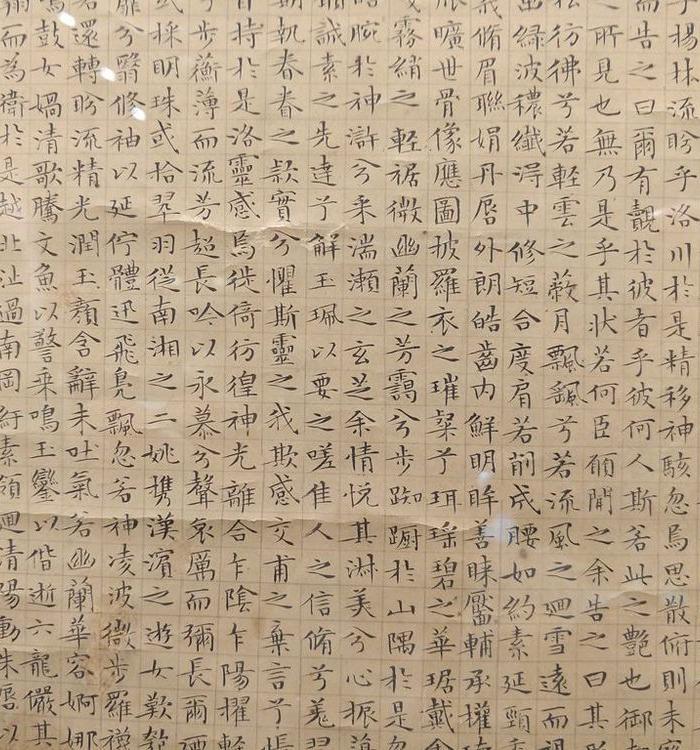 乎楊林流眄乎洛川於是精移神駭忽焉思散俯則未察
而告之曰爾有覿於彼者乎彼何人斯若此之艷也御
之所見也無乃是乎其狀若何臣願聞之余告之曰其
松彷彿兮若輕雲之蔽月飄颻兮若流風之迴雪遠而
出綠波穠纖得中修短合度肩若削成腰如約素延頸
脩眉聯娟丹唇外朗皓齒內鮮明眸善睞靨輔承權
曠世骨像應圖披羅衣之璀粲兮珥瑤碧之華琚戴金
霧綃之輕裾微幽蘭之芳靄兮步踟躕於山隅於是忽
腕於神滸兮采湍瀨之玄芝余情悅其淋美兮心振蕩
誠素之先達兮解玉珮以要之嗟佳人之信脩兮羌習
期執眷眷之款實兮懼斯靈之我欺感交甫之棄言兮悵
持於是洛靈感焉徙倚彷徨神光離合乍陰乍陽擢輕
兮步蘅薄而流芳超長吟以永慕兮聲哀厲而彌長爾迺
或採明珠或拾翠羽從南湘之二姚攜漢濱之遊女歎匏
靡兮翳修袖以延佇體迅飛鳧飄忽若神凌波微步羅襪
還轉眄流精光潤玉顏含辭未吐氣若幽蘭華容婀娜
鳴鼓女媧清歌騰文魚以警乘鳴玉鑾以偕逝六龍儼其
翔而為衛於是越北沚過南岡紆素領迴清陽動朱唇以